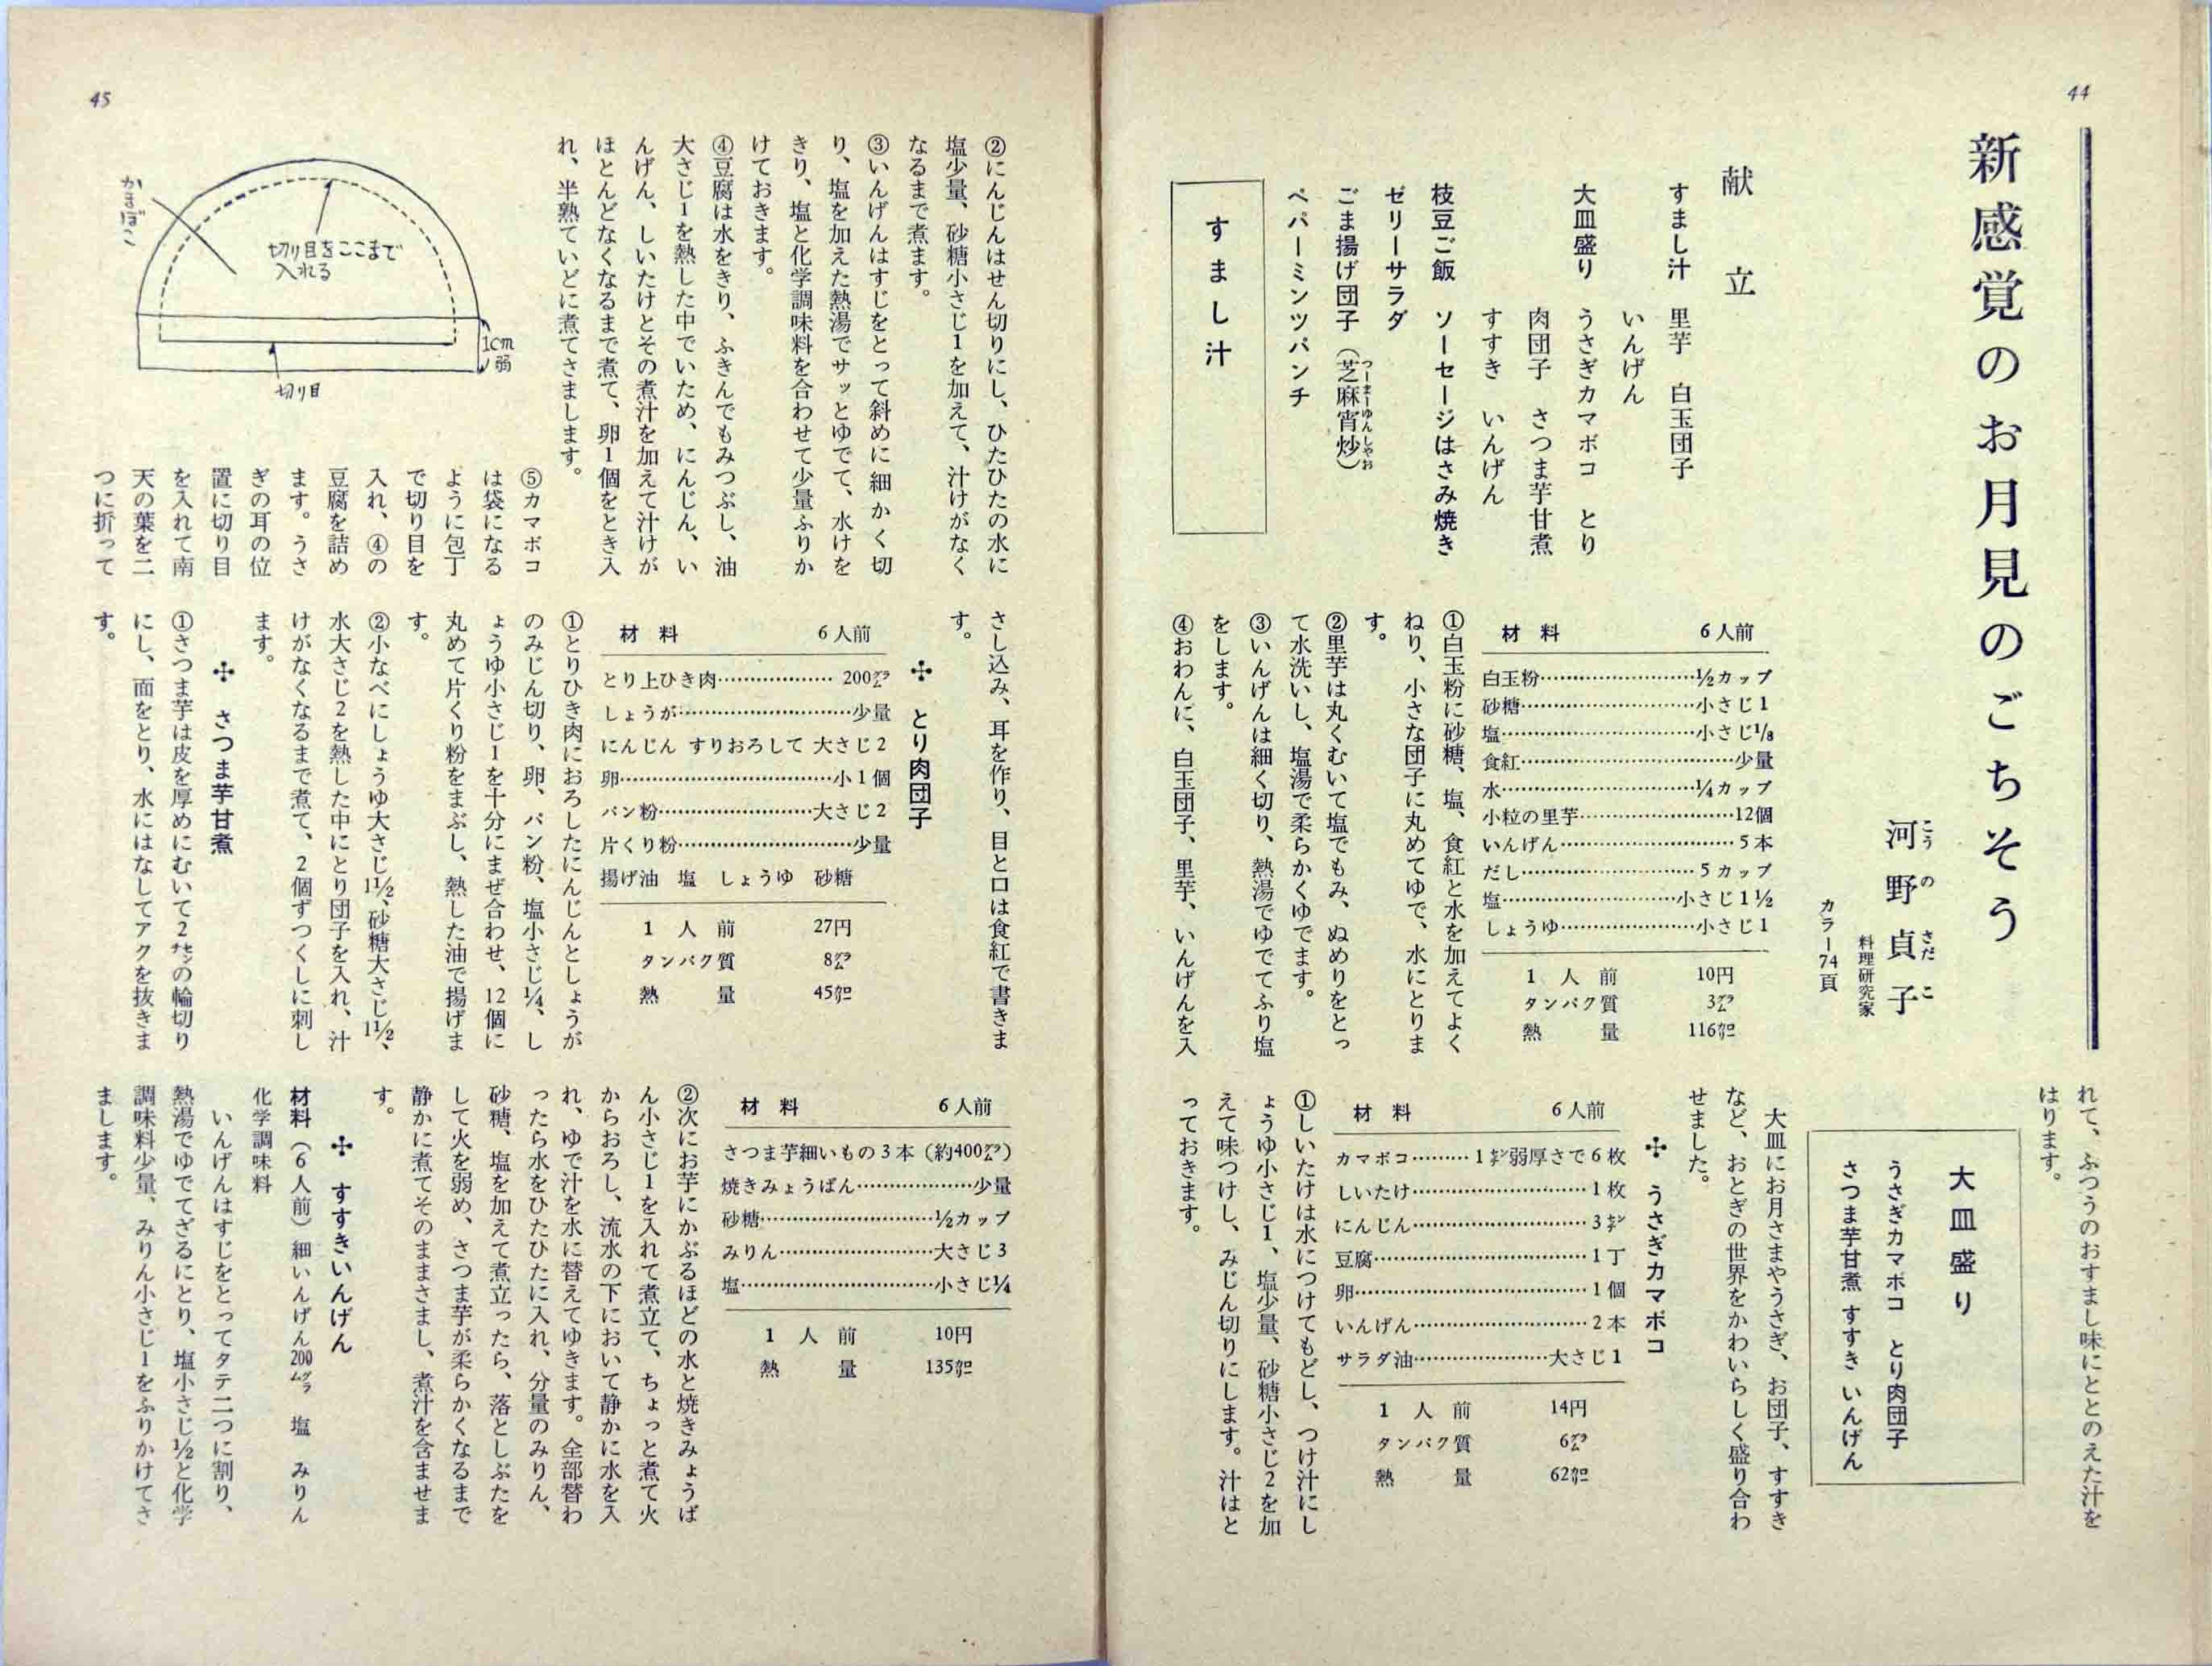 44
新感覚のお月見のごちそう
河野貞子
こうのさだこ
料理研究家
カラー74頁
献立
すまし汁 里芋 白玉団子
いんげん
大皿盛り うさぎカマボコ とり
肉団子 さつま芋甘煮
すすき いんげん
枝豆ご飯 ソーセージはさみ焼き
ゼリーサラダ
ごま揚げ団子（芝麻宵炒）
つーまーゆんしやお
ペパーミンツパンチ
すまし汁
材料 6人前
白玉粉……½カップ
砂糖……小さじ1
塩……小さじ⅛
食紅……少量
水……¼カップ
小粒の里芋……12個
いんげん……5本
だし……5カップ
塩……小さじ1½
しょうゆ……小さじ1
1人前 10円
タンパク質 3㌘
熱量 116㌍
①白玉粉に砂糖、塩、食紅と水を加えてよく
ねり、小さな団子に丸めてゆで、水にとりま
す。
②里芋は丸くむいて塩でもみ、ぬめりをとっ
て水洗いし、塩湯で柔らかくゆでます。
③いんげんは細く切り、熱湯でゆでてふり塩
をします。
④おわんに、白玉団子、里芋、いんげんを入
れて、ふつうのおすまし味にととのえた汁を
はります。
大皿盛り
うさぎカマボコ とり肉団子
さつま芋甘煮 すすき いんげん
大皿にお月さまやうさぎ、お団子、すすき
など、おとぎの世界をかわいらしく盛り合わ
せました。
✣ うさぎカマボコ
材料 6人前
カマボコ……1㌢弱厚さで6枚
しいたけ……1枚
にんじん……3㌢
豆腐……1丁
卵……1個
いんげん……2本
サラダ油……大さじ1
1人前 14円
タンパク質 6㌘
熱量 62㌍
①しいたけは水につけてもどし、つけ汁にし
ょうゆ小さじ1、塩少量、砂糖小さじ2を加
えて味つけし、みじん切りにします。汁はと
っておきます。
45
②にんじんはせん切りにし、ひたひたの水に
塩少量、砂糖小さじ1を加えて、汁けがなく
なるまで煮ます。
③いんげんはすじをとって斜めに細かく切
り、塩を加えた熱湯でサッとゆでて、水けを
きり、塩と化学調味料を合わせて少量ふりか
けておきます。
④豆腐は水をきり、ふきんでもみつぶし、油
大さじ1を熱した中でいため、にんじん、い
んげん、しいたけとその煮汁を加えて汁けが
ほとんどなくなるまで煮て、卵1個をとき入
れ、半熟ていどに煮てさまします。
⑤カマボコ
は袋になる
ように包丁
で切り目を
入れ、④の
豆腐を詰め
ます。うさ
ぎの耳の位
置に切り目
を入れて南
天の葉を二
つに折って
かまぼこ
切り目をここまで
入れる
1cm
弱
切り目
さし込み、耳を作り、目と口は食紅で書きま
す。
✣ とり肉団子
材料 6人前
とり上ひき肉……200㌘
しょうが……少量
にんじん すりおろして 大さじ2
卵……小1個
パン粉……大さじ2
片くり粉……少量
揚げ油 塩 しょうゆ 砂糖
1人前 27円
タンパク質 8㌘
熱量 45㌍
①とりひき肉におろしたにんじんとしょうが
のみじん切り、卵、パン粉、塩小さじ¼、し
ょうゆ小さじ1を十分にまぜ合わせ、12個に
丸めて片くり粉をまぶし、熱した油で揚げま
す。
②小なべにしょうゆ大さじ1½、砂糖大さじ1½、
水大さじ2を熱した中にとり団子を入れ、汁
けがなくなるまで煮て、2個ずつくしに刺し
ます。
✣ さつま芋甘煮
①さつま芋は皮を厚めにむいて2㌢の輪切り
にし、面をとり、水にはなしてアクを抜きま
す。
材料 6人前
さつま芋細いもの3本（約400㌘）
焼きみょうばん……少量
砂糖……½カップ
みりん……大さじ3
塩……小さじ¼
1人前 10円
熱量 135㌍
②次にお芋にかぶるほどの水と焼きみょうば
ん小さじ1を入れて煮立て、ちょっと煮て火
からおろし、流水の下において静かに水を入
れ、ゆで汁を水に替えてゆきます。全部替わ
ったら水をひたひたに入れ、分量のみりん、
砂糖、塩を加えて煮立ったら、落としぶたを
して火を弱め、さつま芋が柔らかくなるまで
静かに煮てそのままさまし、煮汁を含ませま
す。
✣ すすきいんげん
材料（6人前）細いんげん200㌘ 塩 みりん
化学調味料
いんげんはすじをとってタテ二つに割り、
熱湯でゆでてざるにとり、塩小さじ½と化学
調味料少量、みりん小さじ1をふりかけてさ
まします。